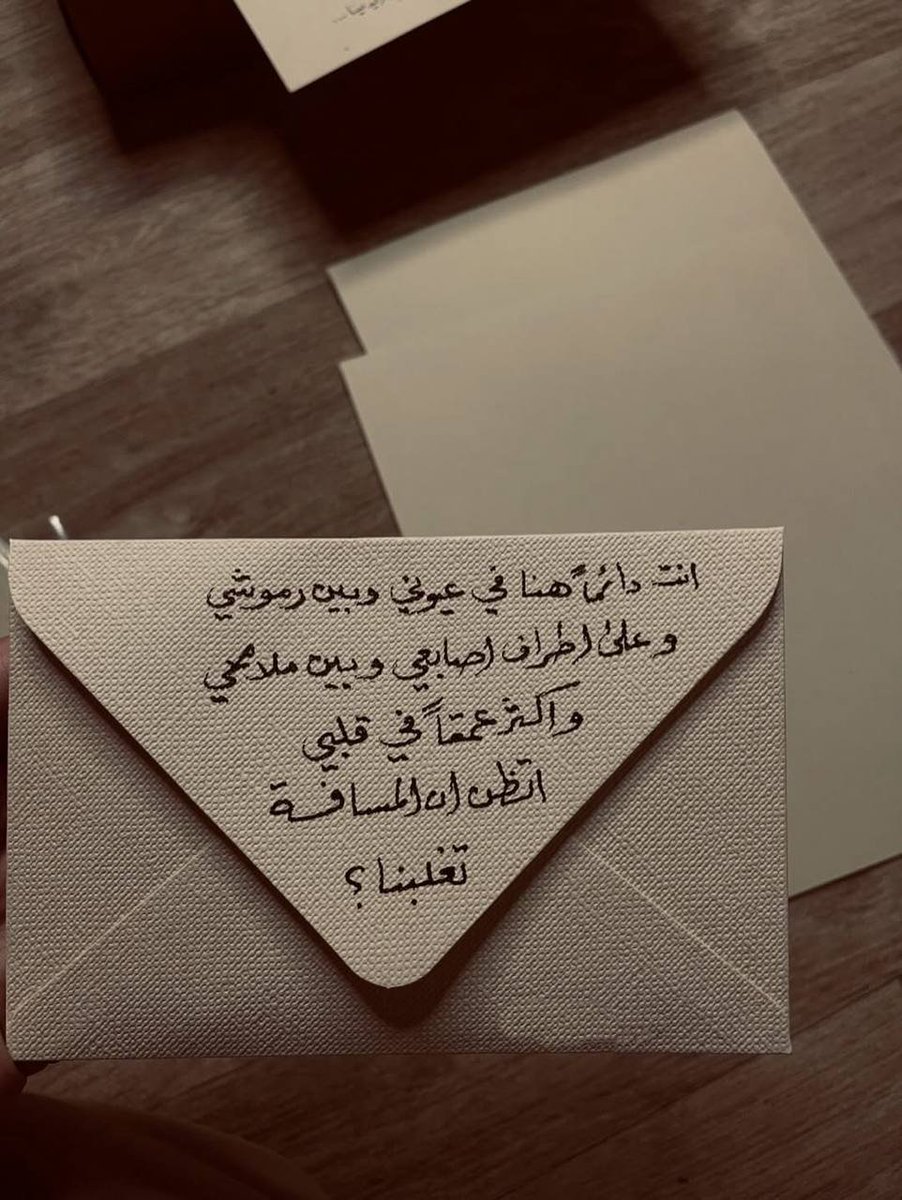 انت دائماً هنا في عيوني وبين رموشي
وعلى اطراف اصابعي وبين ملامحي
واكثر عمقاً في قلبي
اتظن ان المسافة
تغلبنا ؟